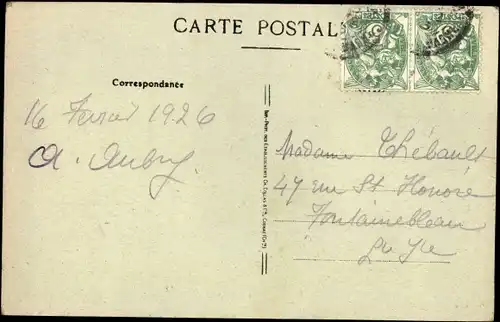 CARTE POSTALE
Correspondance
16 Février 1926
A. Aubry
Madame Thébault
47 rue St Honoré
Fontainebleau